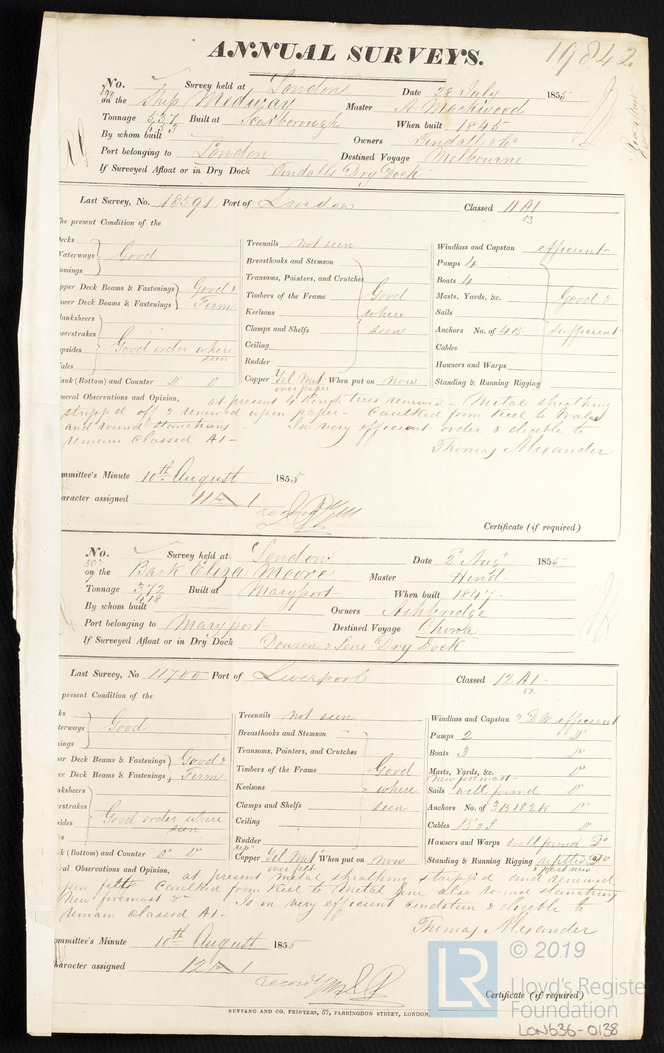 ANNUAL SURVEYS.
19842
No. Survey held at London Date 28 July 1855
on the Ship Medway Master A Mackwood
Tonnage 537 Built at Scarborough When built 1845
By whom built Owners Tindall & Co
Port belonging to London Destined Voyage Melbourne
If Surveyed Afloat or in Dry Dock Tindalls Dry Dock
Last Survey, No. 18591 Port of London Classed 11 A1
53
The present Condition of the
Decks
Waterways Good
Comings
Upper Deck Beams & Fastenings Good &
Lower Deck Beams & Fastenings Firm
Planksheers
Sheerstrakes
Topsides Good order where seen
Wales
Plank (Bottom) and Counter Do Do
Treenails not seen
Breasthooks and Stemson
Transoms, Pointers, and Crutches
Timbers of the Frame Good
Keelsons where
Clamps and Shelfs seen
Ceiling
Rudder
Copper Yel Met When put on now
over paper
Windlass and Capstan efficient
Pumps 4
Boats 4
Masts, Yards, &c. Good &
Sails
Anchors No. of 4B sufficient
Cables
Hawsers and Warps
Standing & Running Rigging
General Observations and Opinion, at present renewed - Metal sheathing
stripped off & renewed upon paper - Caulked from Keel to Wales
and round stanctions In very efficient order & eligible to
remain classed A1 -
Thomas Alexander
Committee's Minute 10th August 1855
Character assigned 11 A 1
Certificate (if required)
No. Survey held at London Date 2d Augt 1855
on the Bark Eliza Moore Master Hind
Tonnage 372 Built at Maryport When built 1847
418
By whom built Owners Ashbridge
Port belonging to Maryport Destined Voyage China
If Surveyed Afloat or in Dry Dock Dowson & Sons Dry Dock
Last Survey, No 11700 Port of Liverpool Classed 12 A1
present Condition of the
Good
Deck Beams & Fastenings Good &
Deck Beams & Fastenings Firm
Good order where
seen
(Bottom) and Counter Do Do
Treenails not seen
Breasthooks and Stemson
Transoms, Pointers, and Crutches
Timbers of the Frame Good
Keelsons where
Clamps and Shelfs seen
Ceiling
Rudder
Copper Yel Met When put on now
over felt
Windlass and Capstan efficient
Pumps 2 Do
Boats 3 Do
Masts, Yards, &c. Do
New foremast
Sails well found Do
Anchors No. of 3B 1S 2K Do
Cables Do
Hawsers and Warps well found Do
Standing & Running Rigging refitted Do
& part new
Observations and Opinion, at present metal sheathing stripped and renewed
upon felt Caulked from Keel to Metal line also round stanctions
New foremast & Is in very efficient condition & eligible to
remain classed A1 -
Thomas Alexander
Committee's Minute 10th August 1855
Character assigned 12 A 1
Certificate (if required)
NEYFANG AND CO. PRINTERS, 57, FARRINGDON STREET, LONDON.
LR © 2019
Lloyd's Register
Foundation
LON636-0138